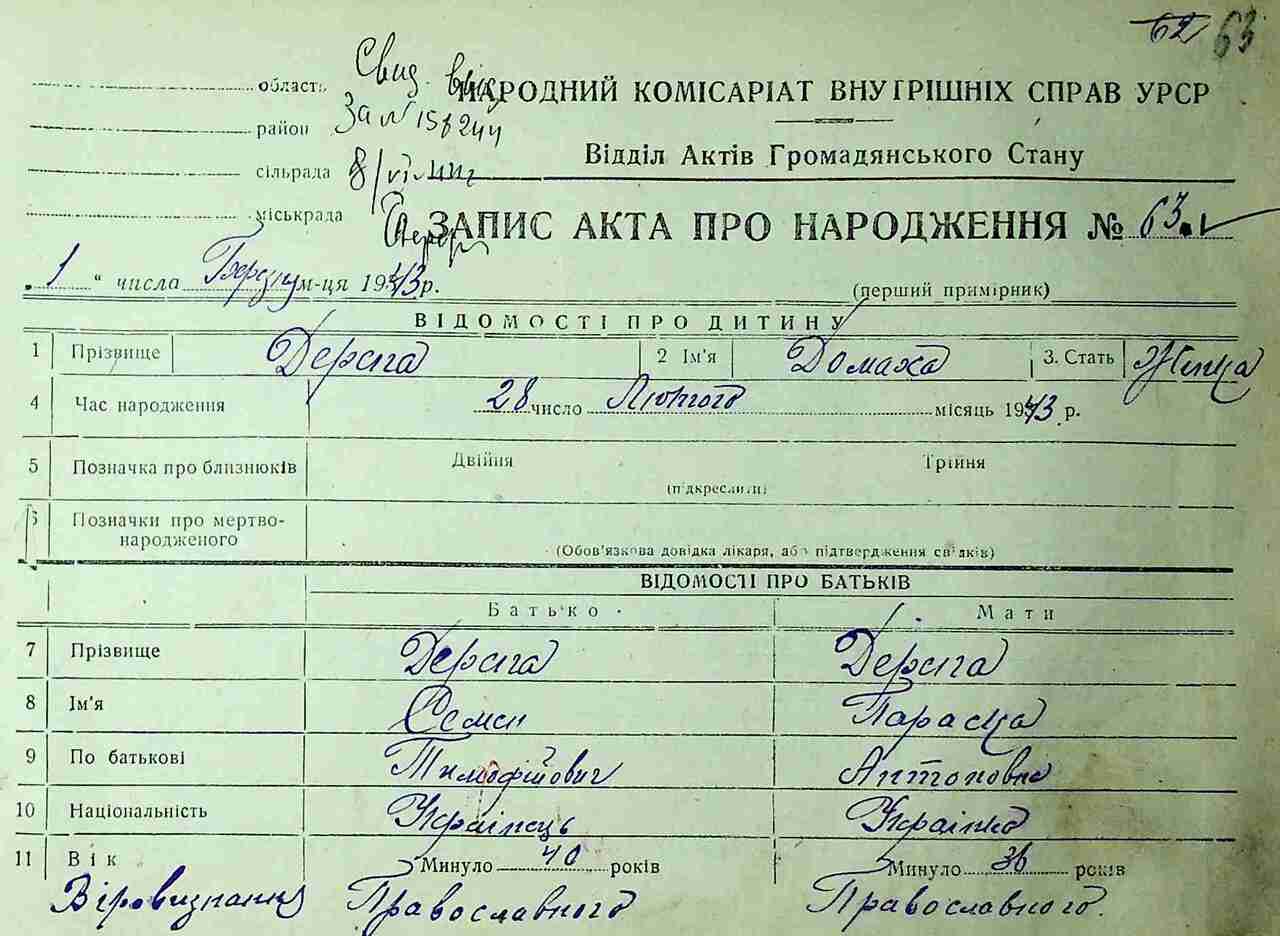 62 63
область Свид. НАРОДНИЙ КОМІСАРІАТ ВНУТРІШНІХ СПРАВ УРСР
район За № 158244
сільрада Відділ Актів Громадянського Стану
міськрада ЗАПИС АКТА ПРО НАРОДЖЕННЯ № 63
„ 1 “ числа м-ця 1943 р.
(перший примірник)
ВІДОМОСТІ ПРО ДИТИНУ
1 Прізвище Дерега 2 Ім'я Домаха 3. Стать Жінка
4 Час народження 28 число Лютого місяць 1943 р.
5 Позначка про близнюків Двійня Трійня
(підкреслити)
6 Позначки про мертво-
народженого
(Обов'язкова довідка лікаря, або підтвердження свідків)
ВІДОМОСТІ ПРО БАТЬКІВ
Батько Мати
7 Прізвище Дерега Дерега
8 Ім'я Семен Параска
9 По батькові Тимофійович Антоновна
10 Національність Українець Українка
11 Вік Минуло 40 років Минуло 36 років
Віровизнання Православного Православного.